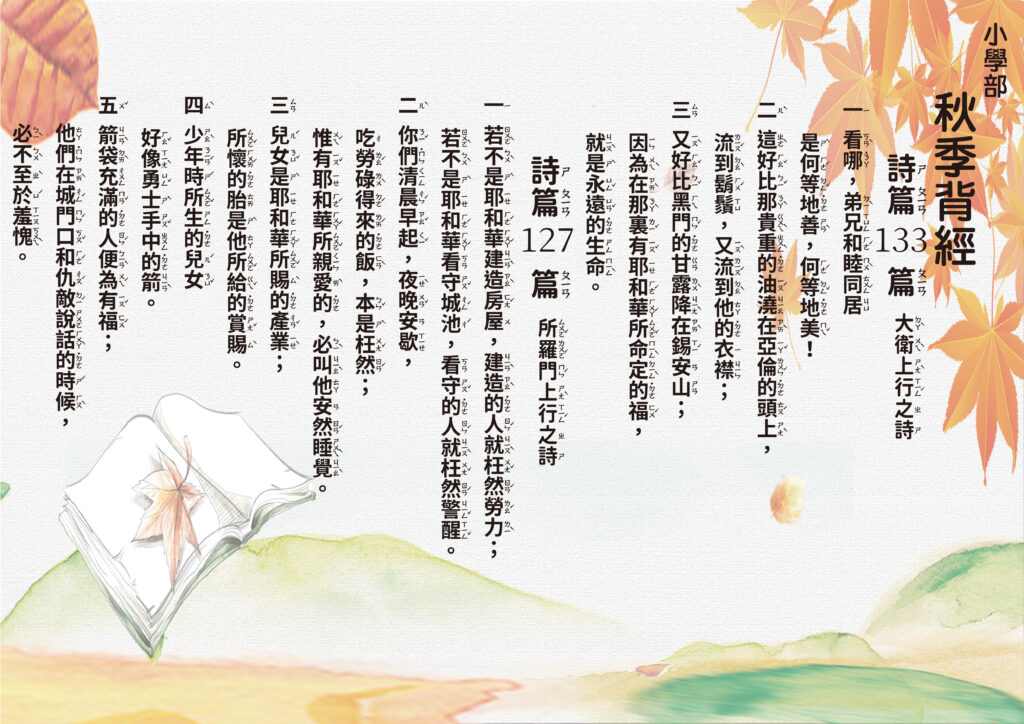 小學部
秋季背經
詩篇 133 篇 大衛上行之詩
一 看哪，弟兄和睦同居
是何等地善，何等地美！
二 這好比那貴重的油澆在亞倫的頭上，
流到鬍鬚，又流到他的衣襟；
三 又好比黑門的甘露降在錫安山；
因為在那裏有耶和華所命定的福，
就是永遠的生命。
詩篇 127 篇 所羅門上行之詩
一 若不是耶和華建造房屋，建造的人就枉然勞力；
若不是耶和華看守城池，看守的人就枉然警醒。
二 你們清晨早起，夜晚安歇，
吃勞碌得來的飯，本是枉然；
惟有耶和華所親愛的，必叫他安然睡覺。
三 兒女是耶和華所賜的產業；
所懷的胎是他所給的賞賜。
四 少年時所生的兒女
好像勇士手中的箭。
五 箭袋充滿的人便為有福；
他們在城門口和仇敵說話的時候，
必不至於羞愧。